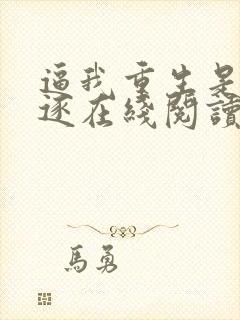 逼我重生是
逐在綫閱讀
馬勇